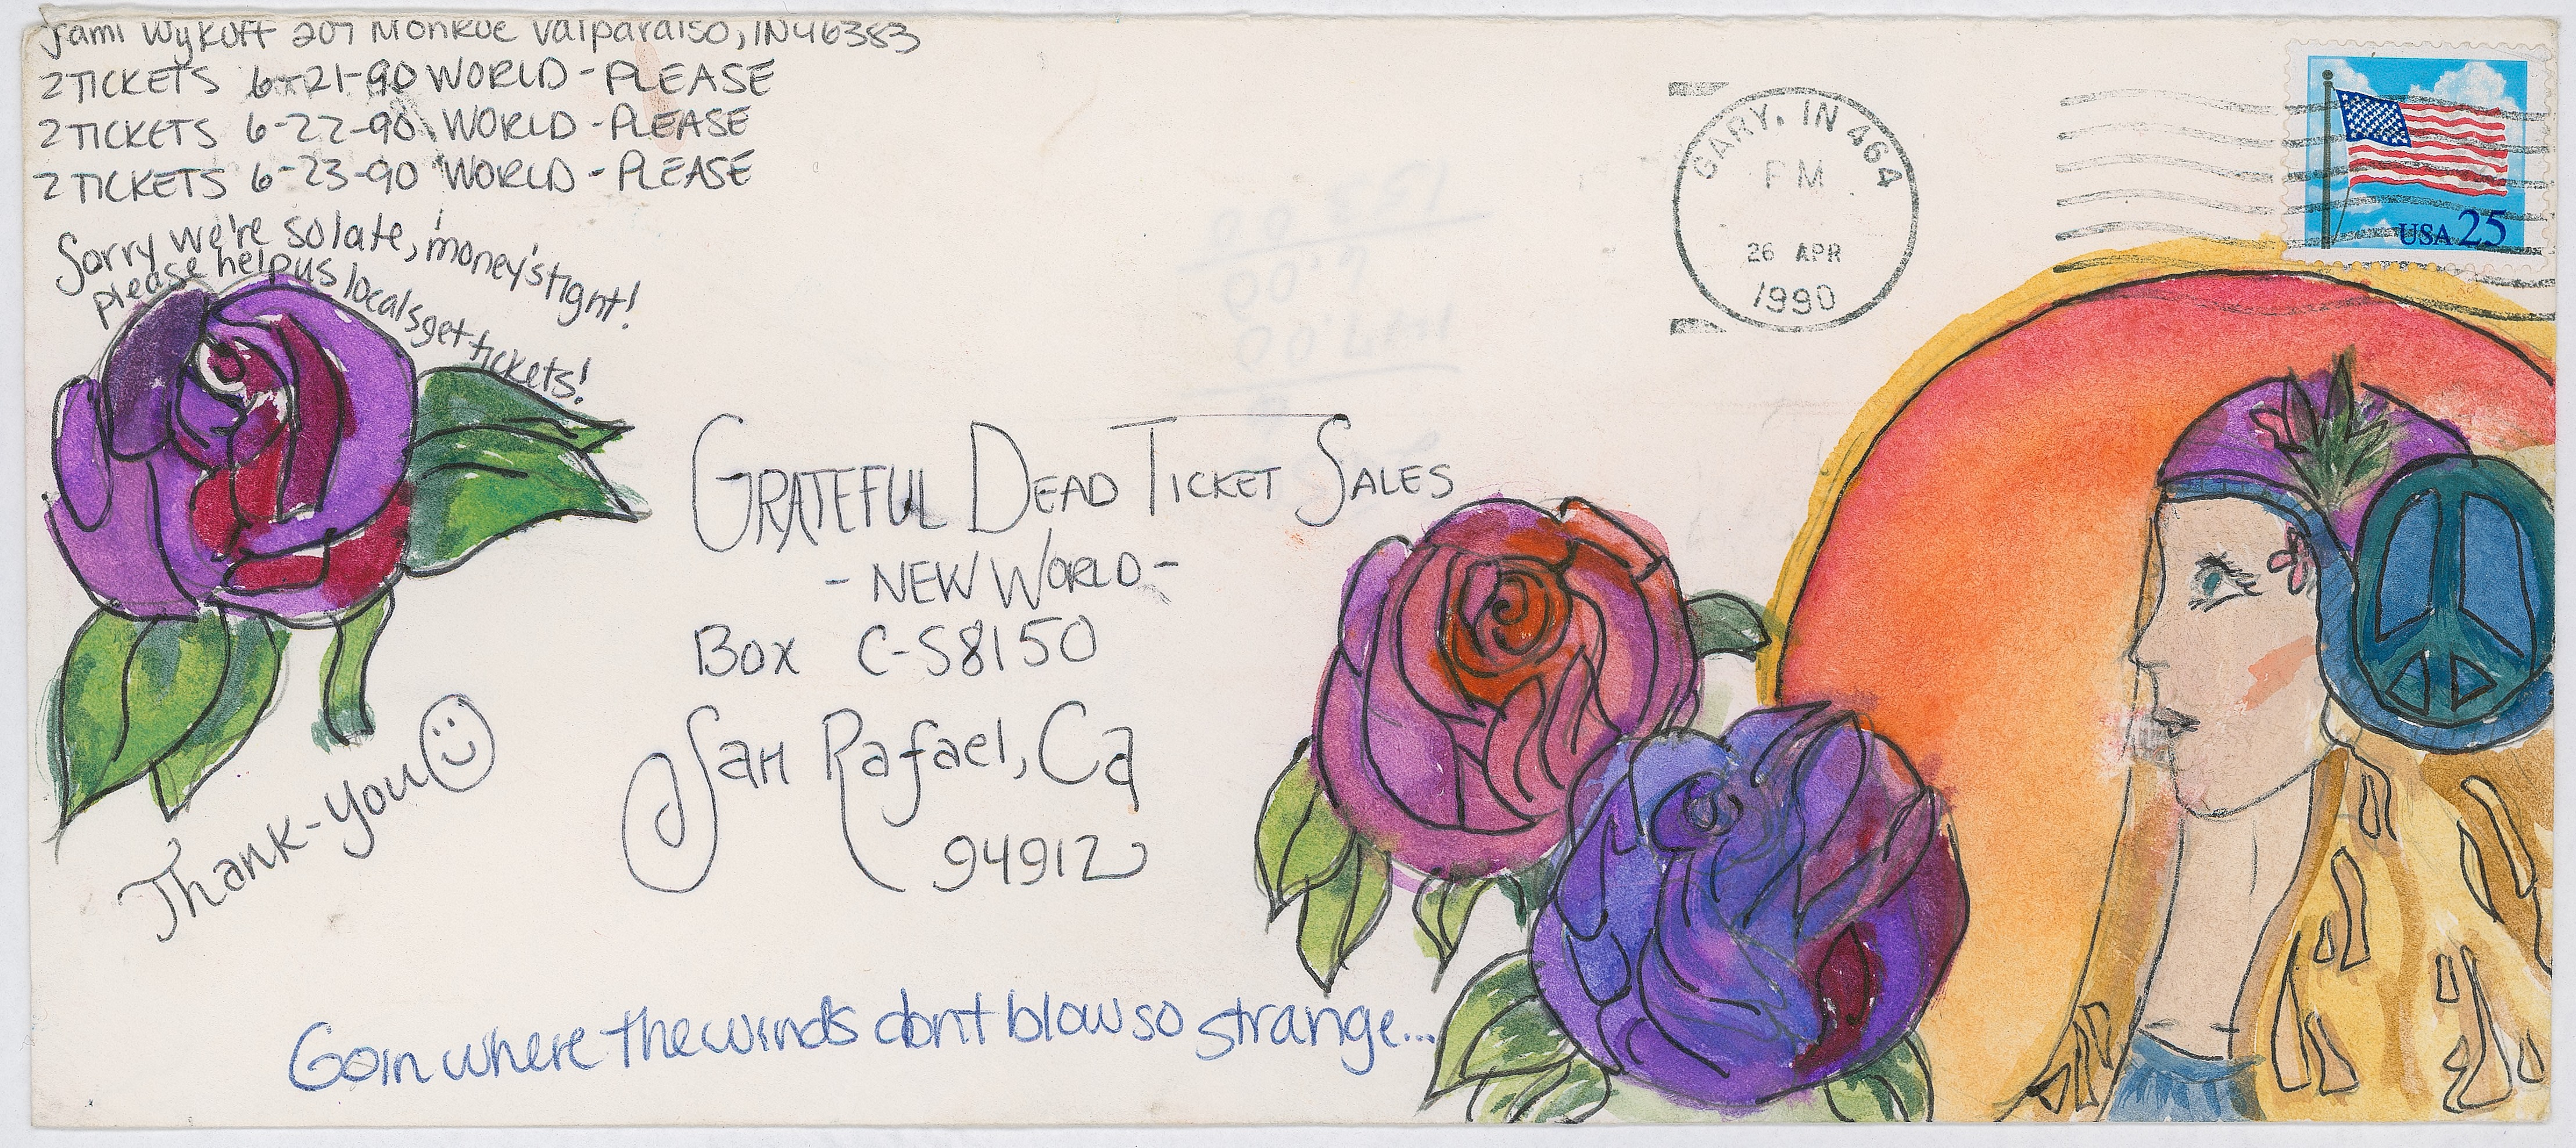 Jami Wykoff 207 Monroe Valparaiso, IN 46383
2 TICKETS 6-21-90 WORLD - PLEASE
2 TICKETS 6-22-90 WORLD - PLEASE
2 TICKETS 6-23-90 WORLD - PLEASE
Sorry we're so late, money's tight!
please help us locals get tickets!
GARY, IN 464
PM
26 APR
1990
USA 25
GRATEFUL DEAD TICKET SALES
- NEW WORLD -
Box C-S8150
San Rafael, Ca
94912
Thank-you
Goin where the winds dont blow so strange...